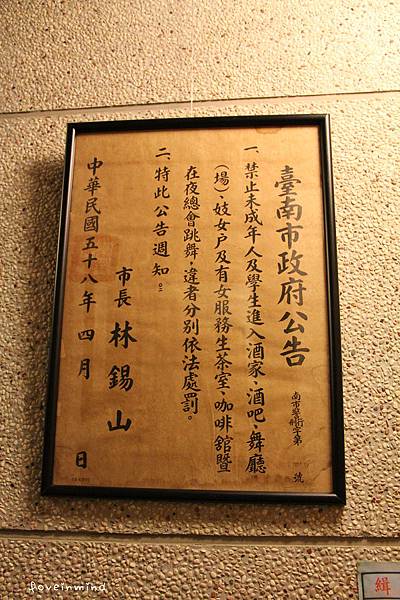 臺南市政府公告
南市警行字第　　號
一、禁止未成年人及學生進入酒家、酒吧、舞廳
（場）、妓女户及有女服務生茶室、咖啡舘暨
在夜總會跳舞，違者分別依法處罰。
二、特此公告週知。
市長 林錫山
中華民國五十八年四月　　日
緝
loveinmind